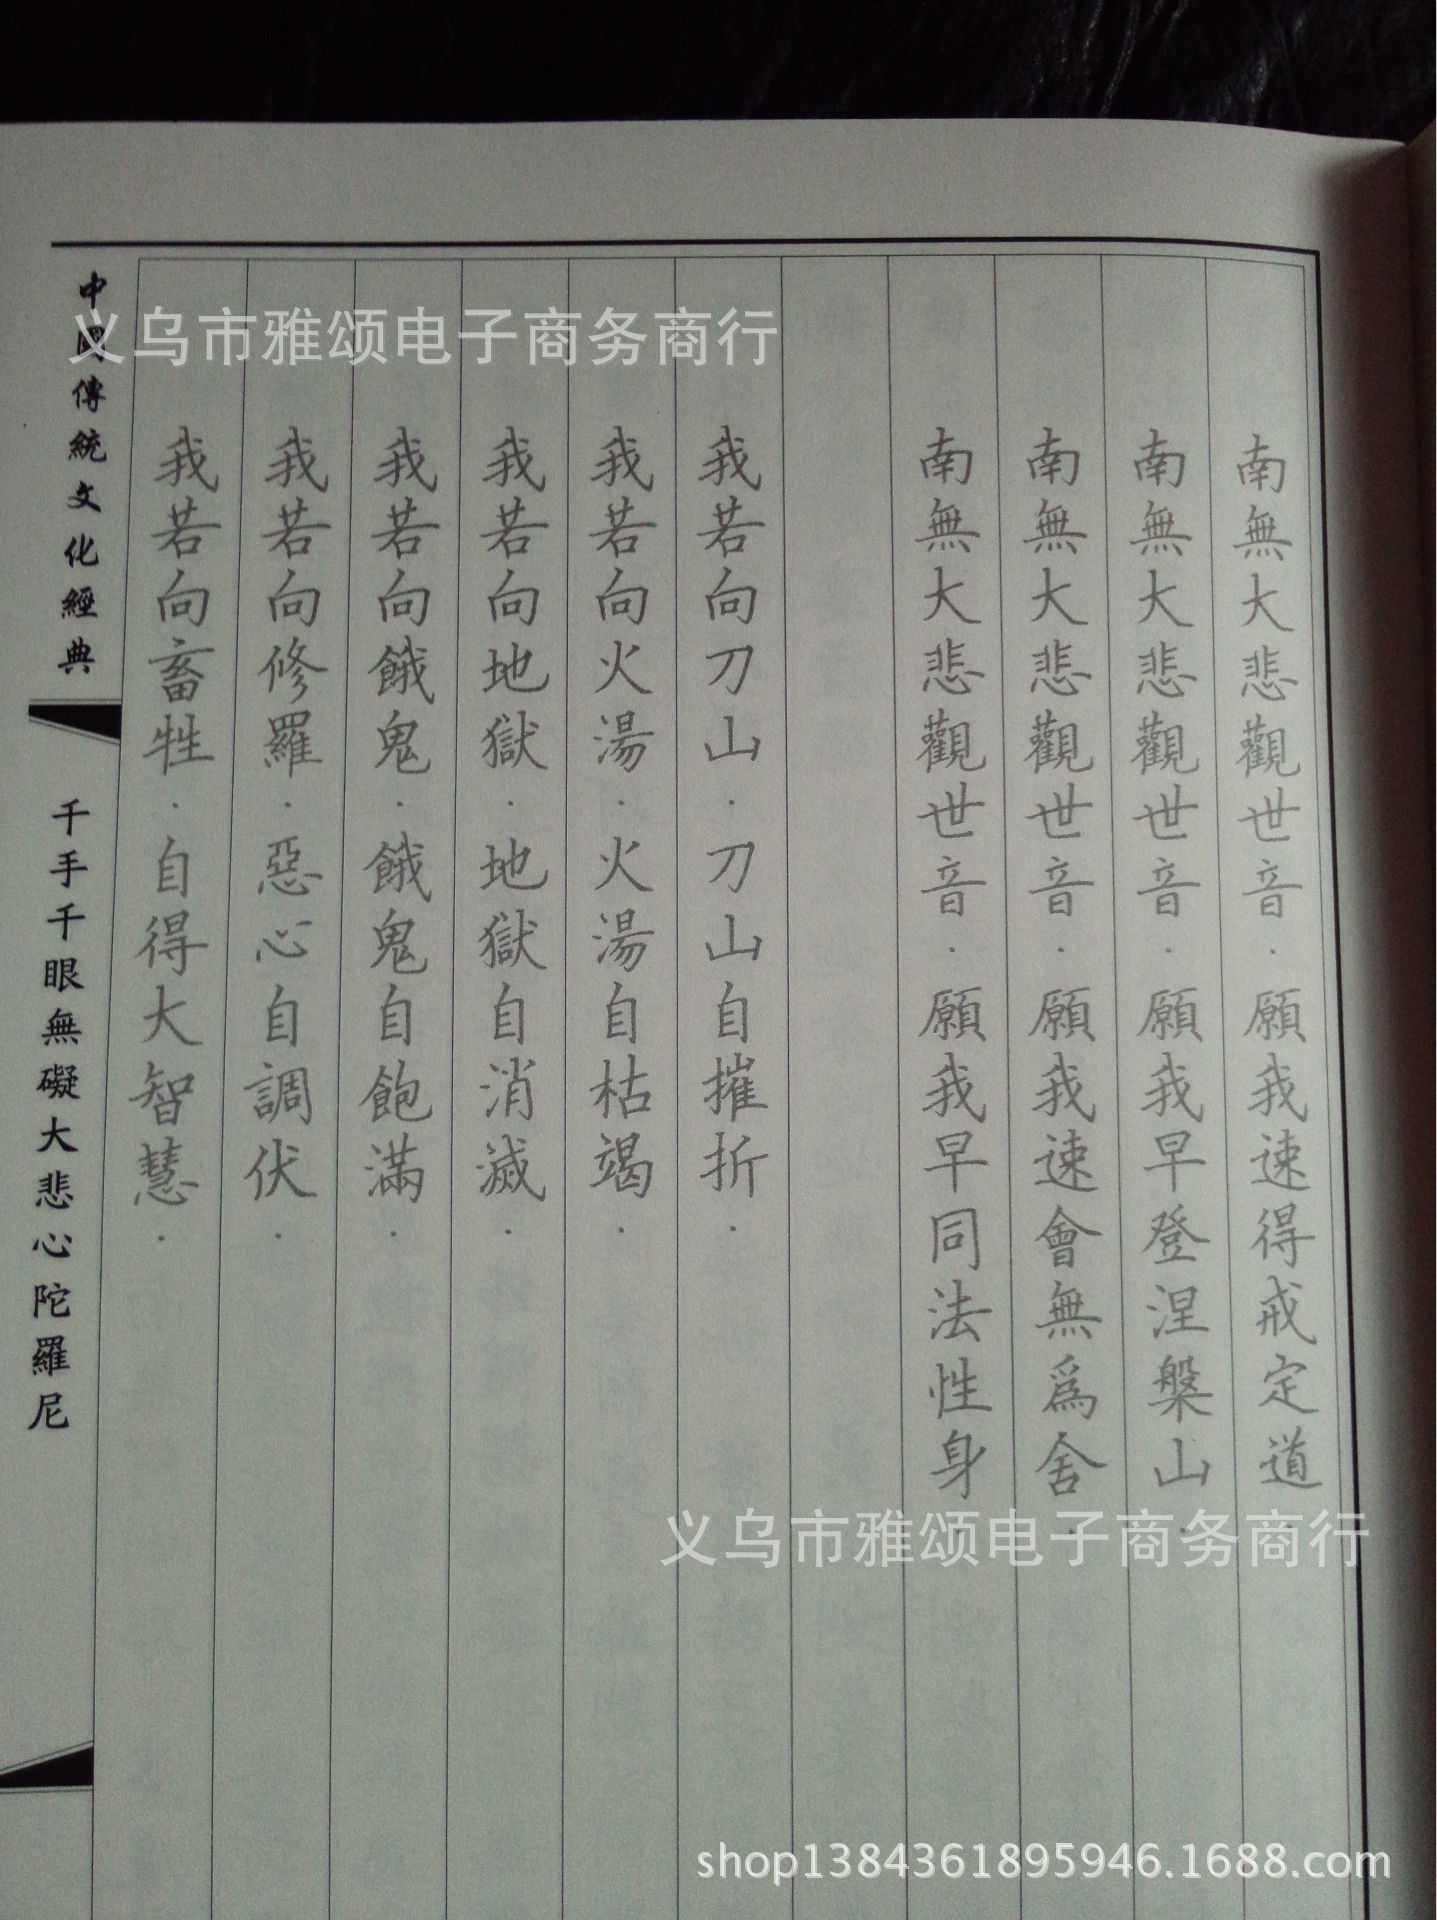 南無大悲觀世音·願我速得戒定道·
南無大悲觀世音·願我早登涅槃山·
南無大悲觀世音·願我速會無爲舍·
南無大悲觀世音·願我早同法性身
我若向刀山·刀山自摧折·
我若向火湯·火湯自枯竭·
我若向地獄·地獄自消滅·
我若向餓鬼·餓鬼自飽滿·
我若向修羅·惡心自調伏·
我若向畜牲·自得大智慧·
中國傳統文化經典
千手千眼無礙大悲心陀羅尼
义乌市雅颂电子商务商行
义乌市雅颂电子商务商行
shop1384361895946.1688.com